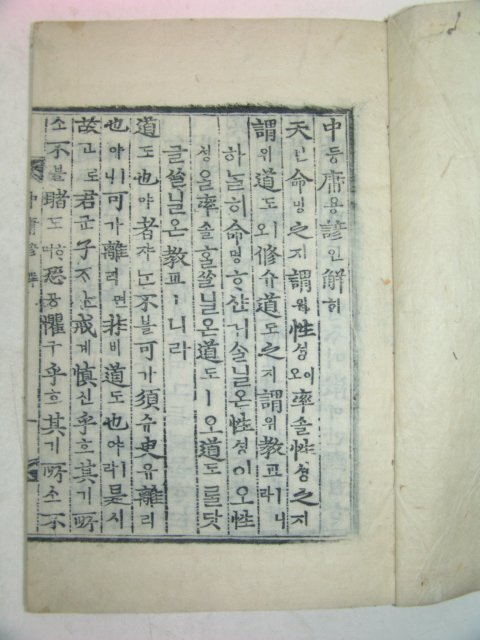 中듕庸용諺언解ᄒᆡ
天텬命명之지謂위性셩이오率솔性셩之지
謂위道도ㅣ오修슈道도之지謂위敎교ㅣ니라
하ᄂᆞᆯ히命명ᄒᆞ샨거슬닐온性셩이오性
셩을率솔홀쓸닐온道도ㅣ오道도ᄅᆞᆯ닷
글쓸닐온敎교ㅣ니라
道도也야者쟈ᄂᆞᆫ不블可가須슈臾유離리
也야ㅣ니可가離리면非비道도也야ㅣ라是시
故고로君군子ᄌᆞᄂᆞᆫ戒계愼신乎호其기所
소不블睹도ᄒᆞ며恐공懼구乎호其기所소不
中庸諺解